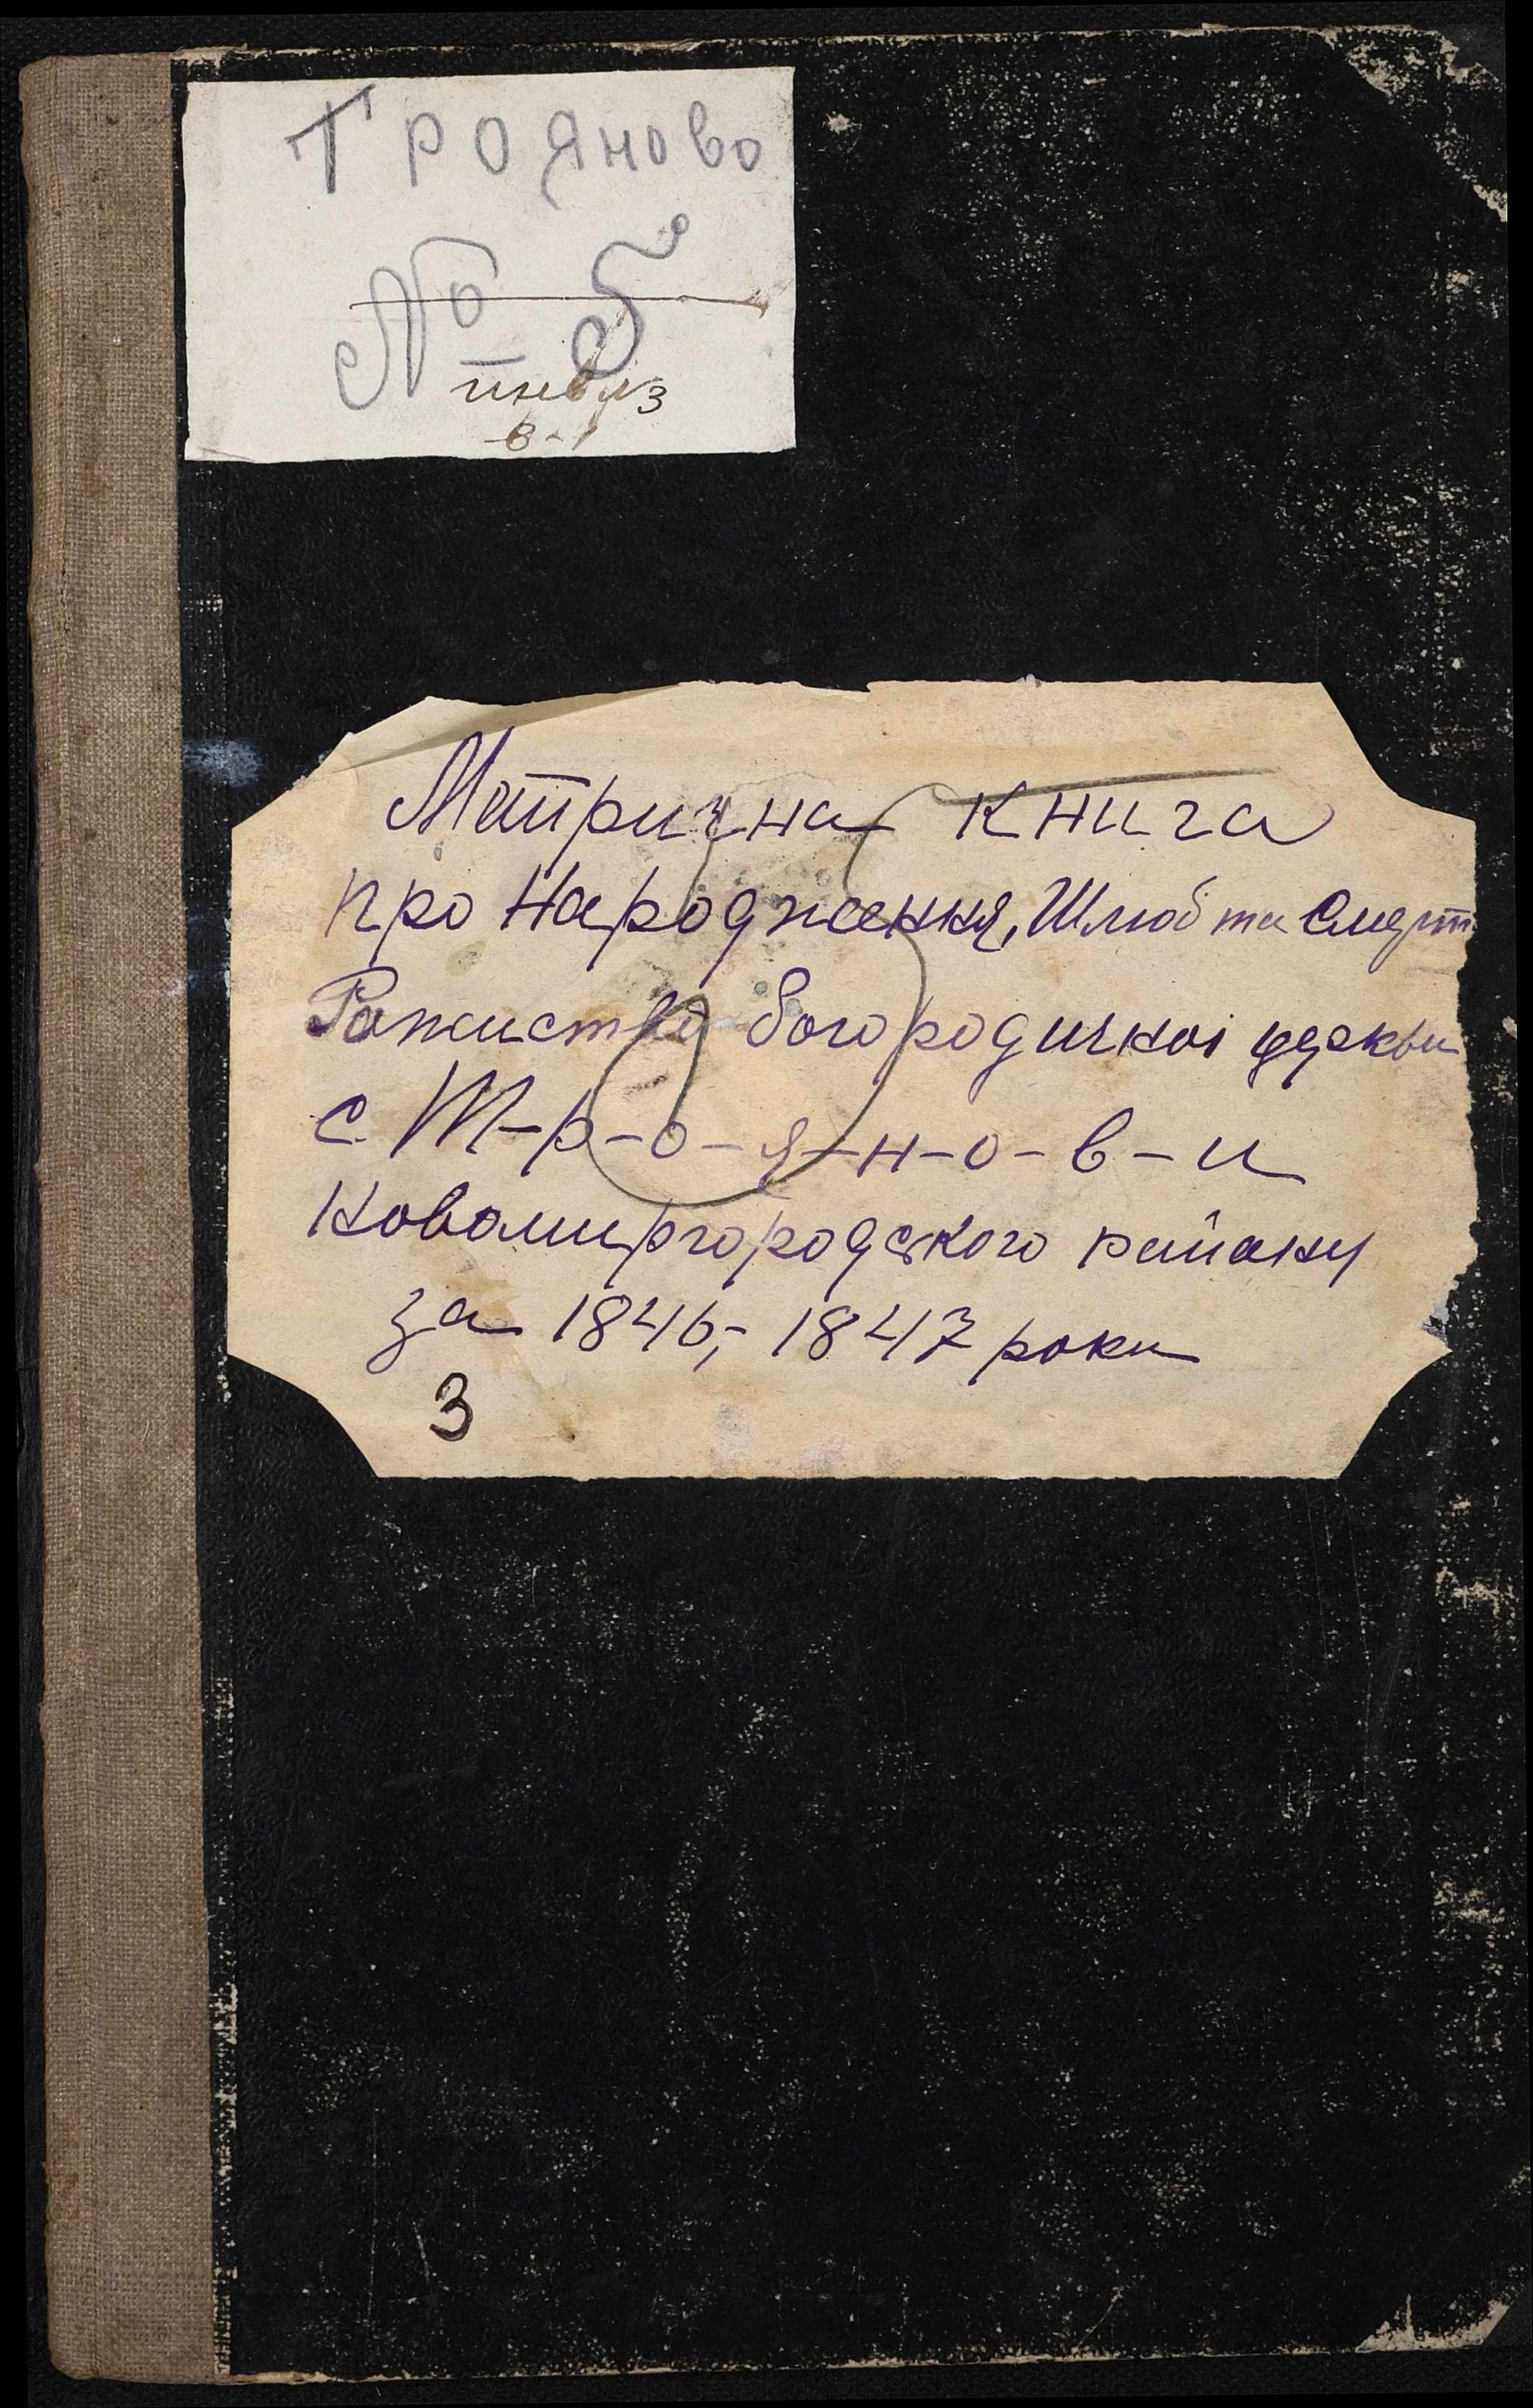 Трояново
№ 5
инв №3
в-1
Матрична книга
про Народження, Шлюб та Смерт
Рожиство богородичноі церкви
с Т-р-о-я-н-о-в-и
Новомиргородського району
за 1846,- 1847 роки
3